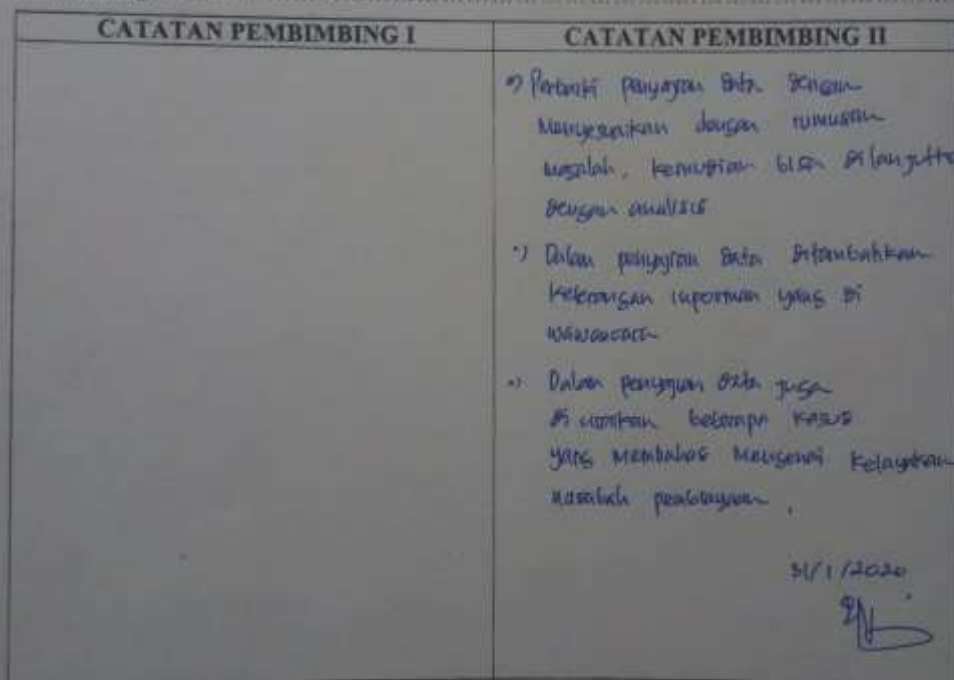 CATATAN PEMBIMBING I
CATATAN PEMBIMBING II
Perbaiki penyajian data dengan
Menyesuaikan dengan rumusan
masalah, kemudian bisa dilanjutka
dengan analisis
Dalam penyajian data ditambahkan
keterangan informan yang di
wawancara
Dalam penyajian data juga
di uraikan beberapa kasus
yang membahas mengenai kelayakan
nasabah pembiayaan.
31/1/2020